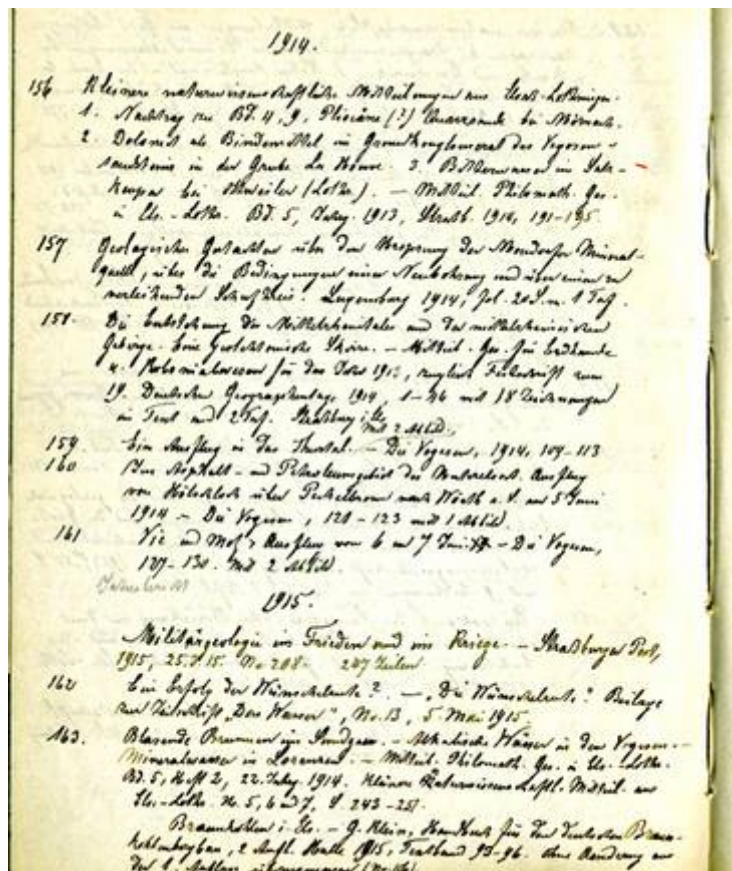 1914.
156 Kleinere naturwissenschaftliche Mitteilungen aus Elsaß-Lothringen.
1. Nachtrag zu Bd. 4, 9, Pliocäne (?) Quarzsande bei
2. Dolomit als Bindemittel im Grauwackenconglomerat des Vogesen-
sandsteins in der Grube La Houve. 3. Bitterwasser im Salz-
keuper bei (Lothr.). — Mitteil. Philomath. Ges.
i. Els.-Lothr. Bd. 5, Jahrg. 1913, Straßb. 1914, 191-195.
157 Geologisches Gutachten über den Ursprung der Mondorfer Mineral-
quelle, über die Bedingungen einer Neubohrung und über einen zu
verleihenden Schutzkreis. Luxemburg 1914, fol. 20 S. m. 1 Taf.
158 Die Entstehung des Mittelrheintales und der mittelrheinischen
Gebirge. Eine geotektonische Skizze. — Mitteil. Ges. für Erdkunde
u. Kolonialwesen für das Jahr 1913, zugleich Festschrift zum
19. Deutschen Geographentage, 1914, mit 18 Zeichnungen
im Text und 2 Taf. Straßburg i. Els.
mit 2 Abbild.
159. Ein Ausflug in das Thurtal. — Die Vogesen, 1914, 109-113
160 Das Asphalt- und Petroleumgebiet des Unterelsaß. Ausflug
von Hölschloch über Pechelbronn nach Wörth a. S. am 5 Juni
1914 — Die Vogesen, 121-123 mit 1 Abbild.
161 Vic und Ausflug vom 6. und 7 Juni — Die Vogesen,
127-130. Mit 2 Abbild.
1915.
Militärgeologie im Frieden und im Kriege. — Straßburger Post,
1915, 25. 15. No 208 — 247 Zeilen
162 Ein Erfolg der Wünschelrute? — „Die Wünschelrute." Beilage
zur Zeitschrift „Das Wasser", No. 13, 5. Mai 1915.
163. Blasende Brunnen im Sundgau. — Alkalische Wässer in den Vogesen. —
Mineralwasser in Lorenzen. — Mitteil. Philomath. Ges. i. Els.-Lothr.
Bd. 5, Heft 2, 22. Jahrg. 1914. Kleinere Naturwissenschaftl. Mitteil. aus
Els.-Lothr. No 5, 6 und 7, S. 243-251.
Braunkohlen i. Els. — G. Klein, Handbuch für den deutschen Braun-
kohlenbergbau, 2 Aufl. Halle 1915, Textband 93-96. Ohne Änderung aus
der 1. Auflage übernommen